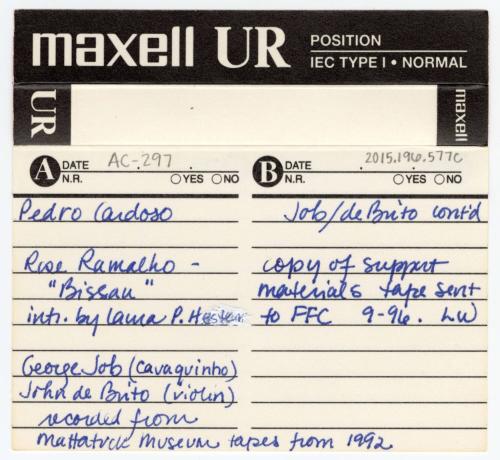 maxell UR
POSITION
IEC TYPE I • NORMAL
UR
maxell
A DATE AC-297
N.R. ○YES ○NO
Pedro Cardoso
Rose Ramalho -
"Bissau"
intr. by Laura P.
George Job (cavaquinho)
John de Brito (violin)
recorded from
Mattatuck Museum tapes from 1992
B DATE 2015.196.577c
N.R. ○YES ○NO
Job/de Brito cont'd
copy of support
materials tape sent
to FFC 9-96. LW